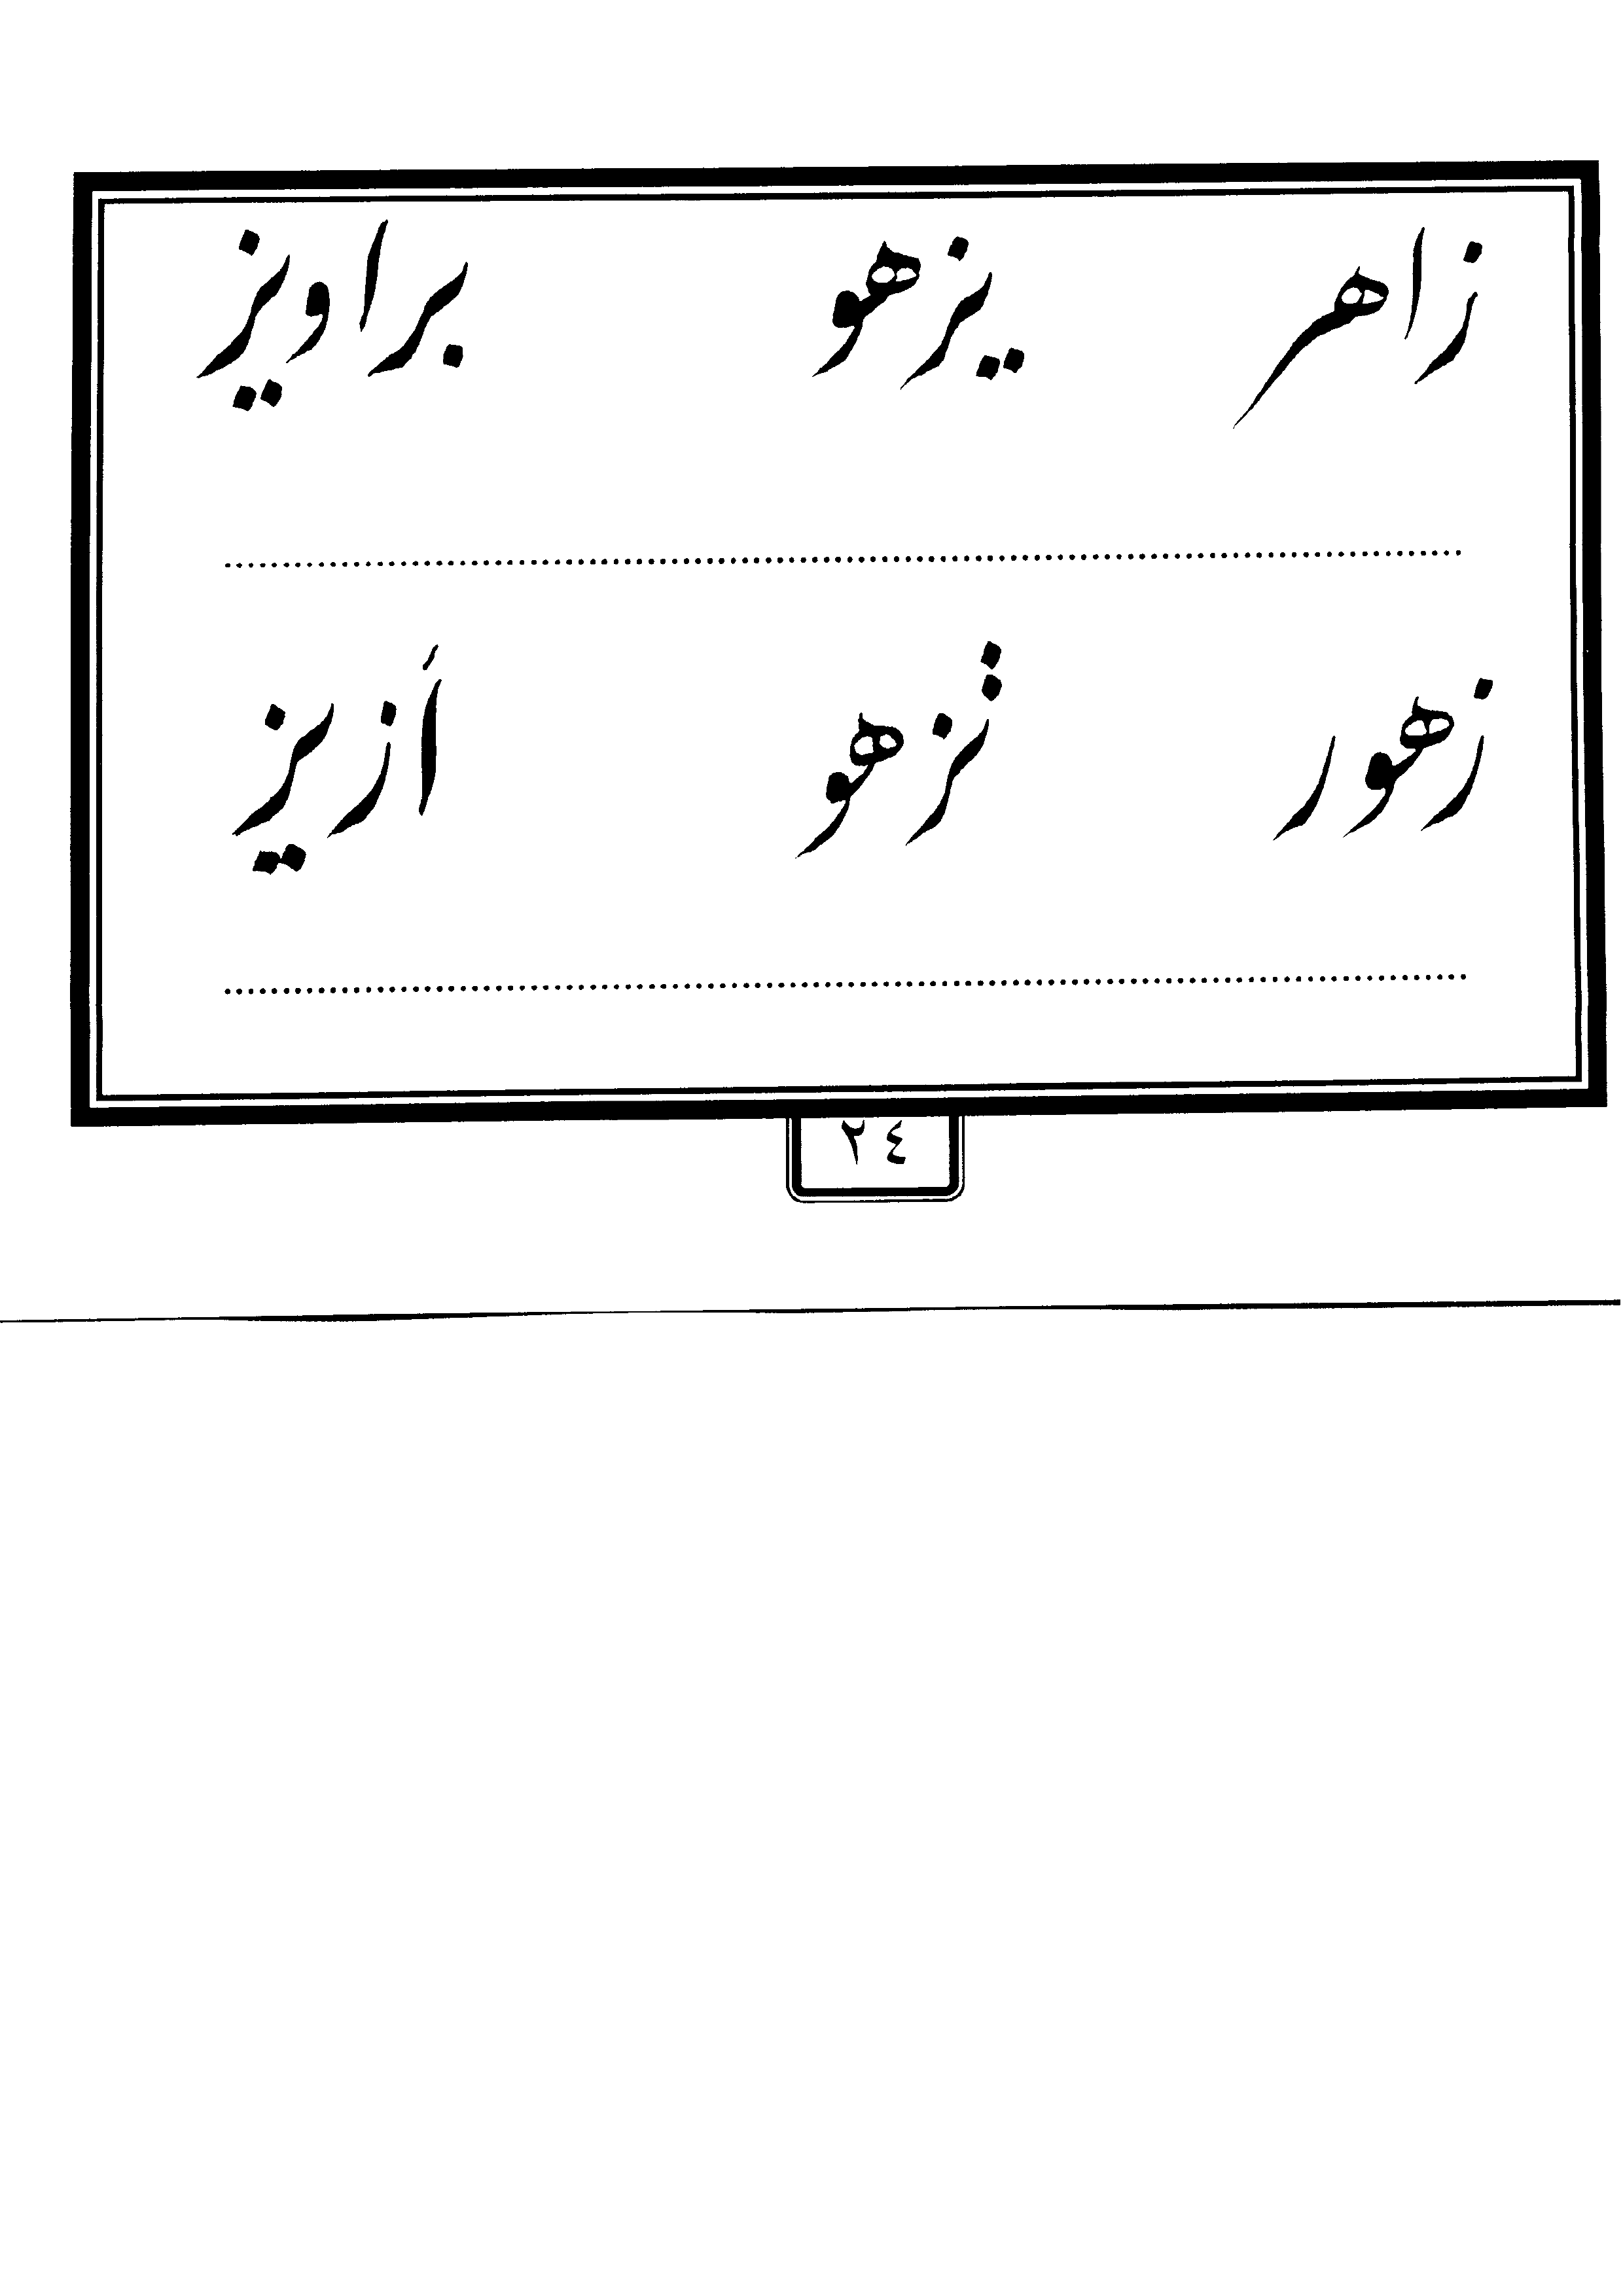 زاهر يزهو براويز
زهور تزهو أَزيز
٢٤